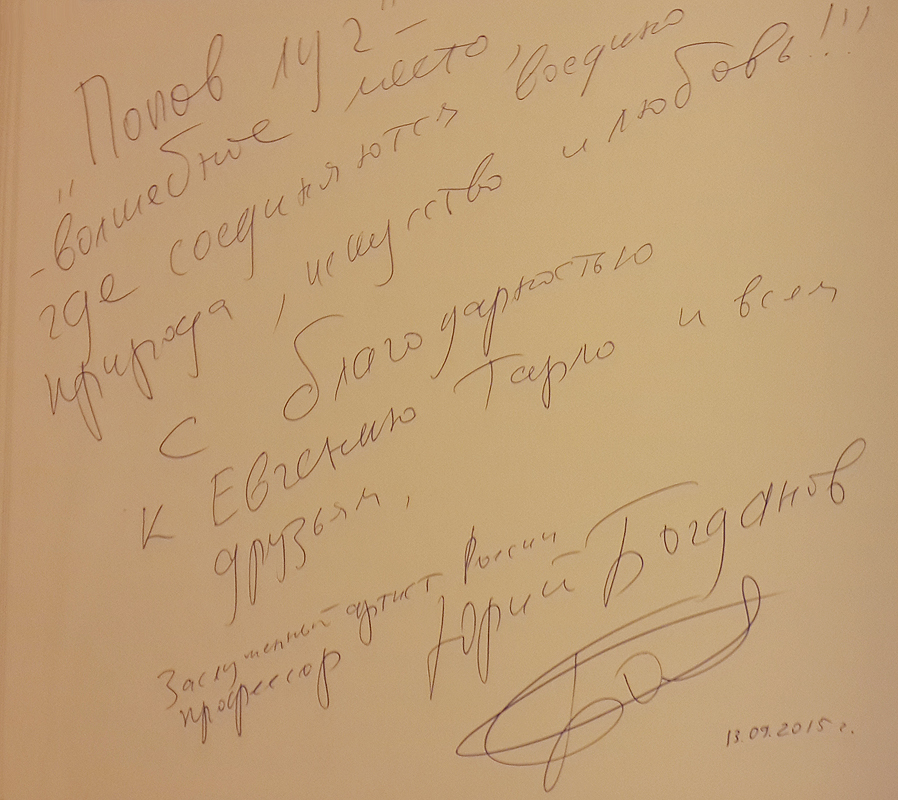 "Попов луг" -
- волшебное место,
где соединяются воедино
природа, искусство и любовь!!!
С благодарностью
к Евгению Тарло и всем
друзьям,
Заслуженный артист России
профессор Юрий Богданов
13.09.2015 г.